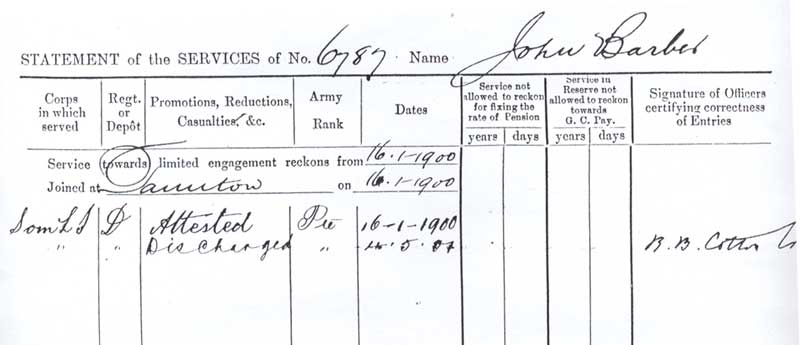 STATEMENT of the SERVICES of No. 6787 Name John Barber
Corps in which served
Regt. or Depôt
Promotions, Reductions, Casualties, &c.
Army Rank
Dates
Service not allowed to reckon for fixing the rate of Pension
years days
Service in Reserve not allowed to reckon towards G. C. Pay.
years days
Signature of Officers certifying correctness of Entries
Service towards limited engagement reckons from 16.1-1900
Joined at Taunton on 16.1-1900
Som L I D Attested Pte 16-1-1900
" " Discharged " 5 R. B. Cotton